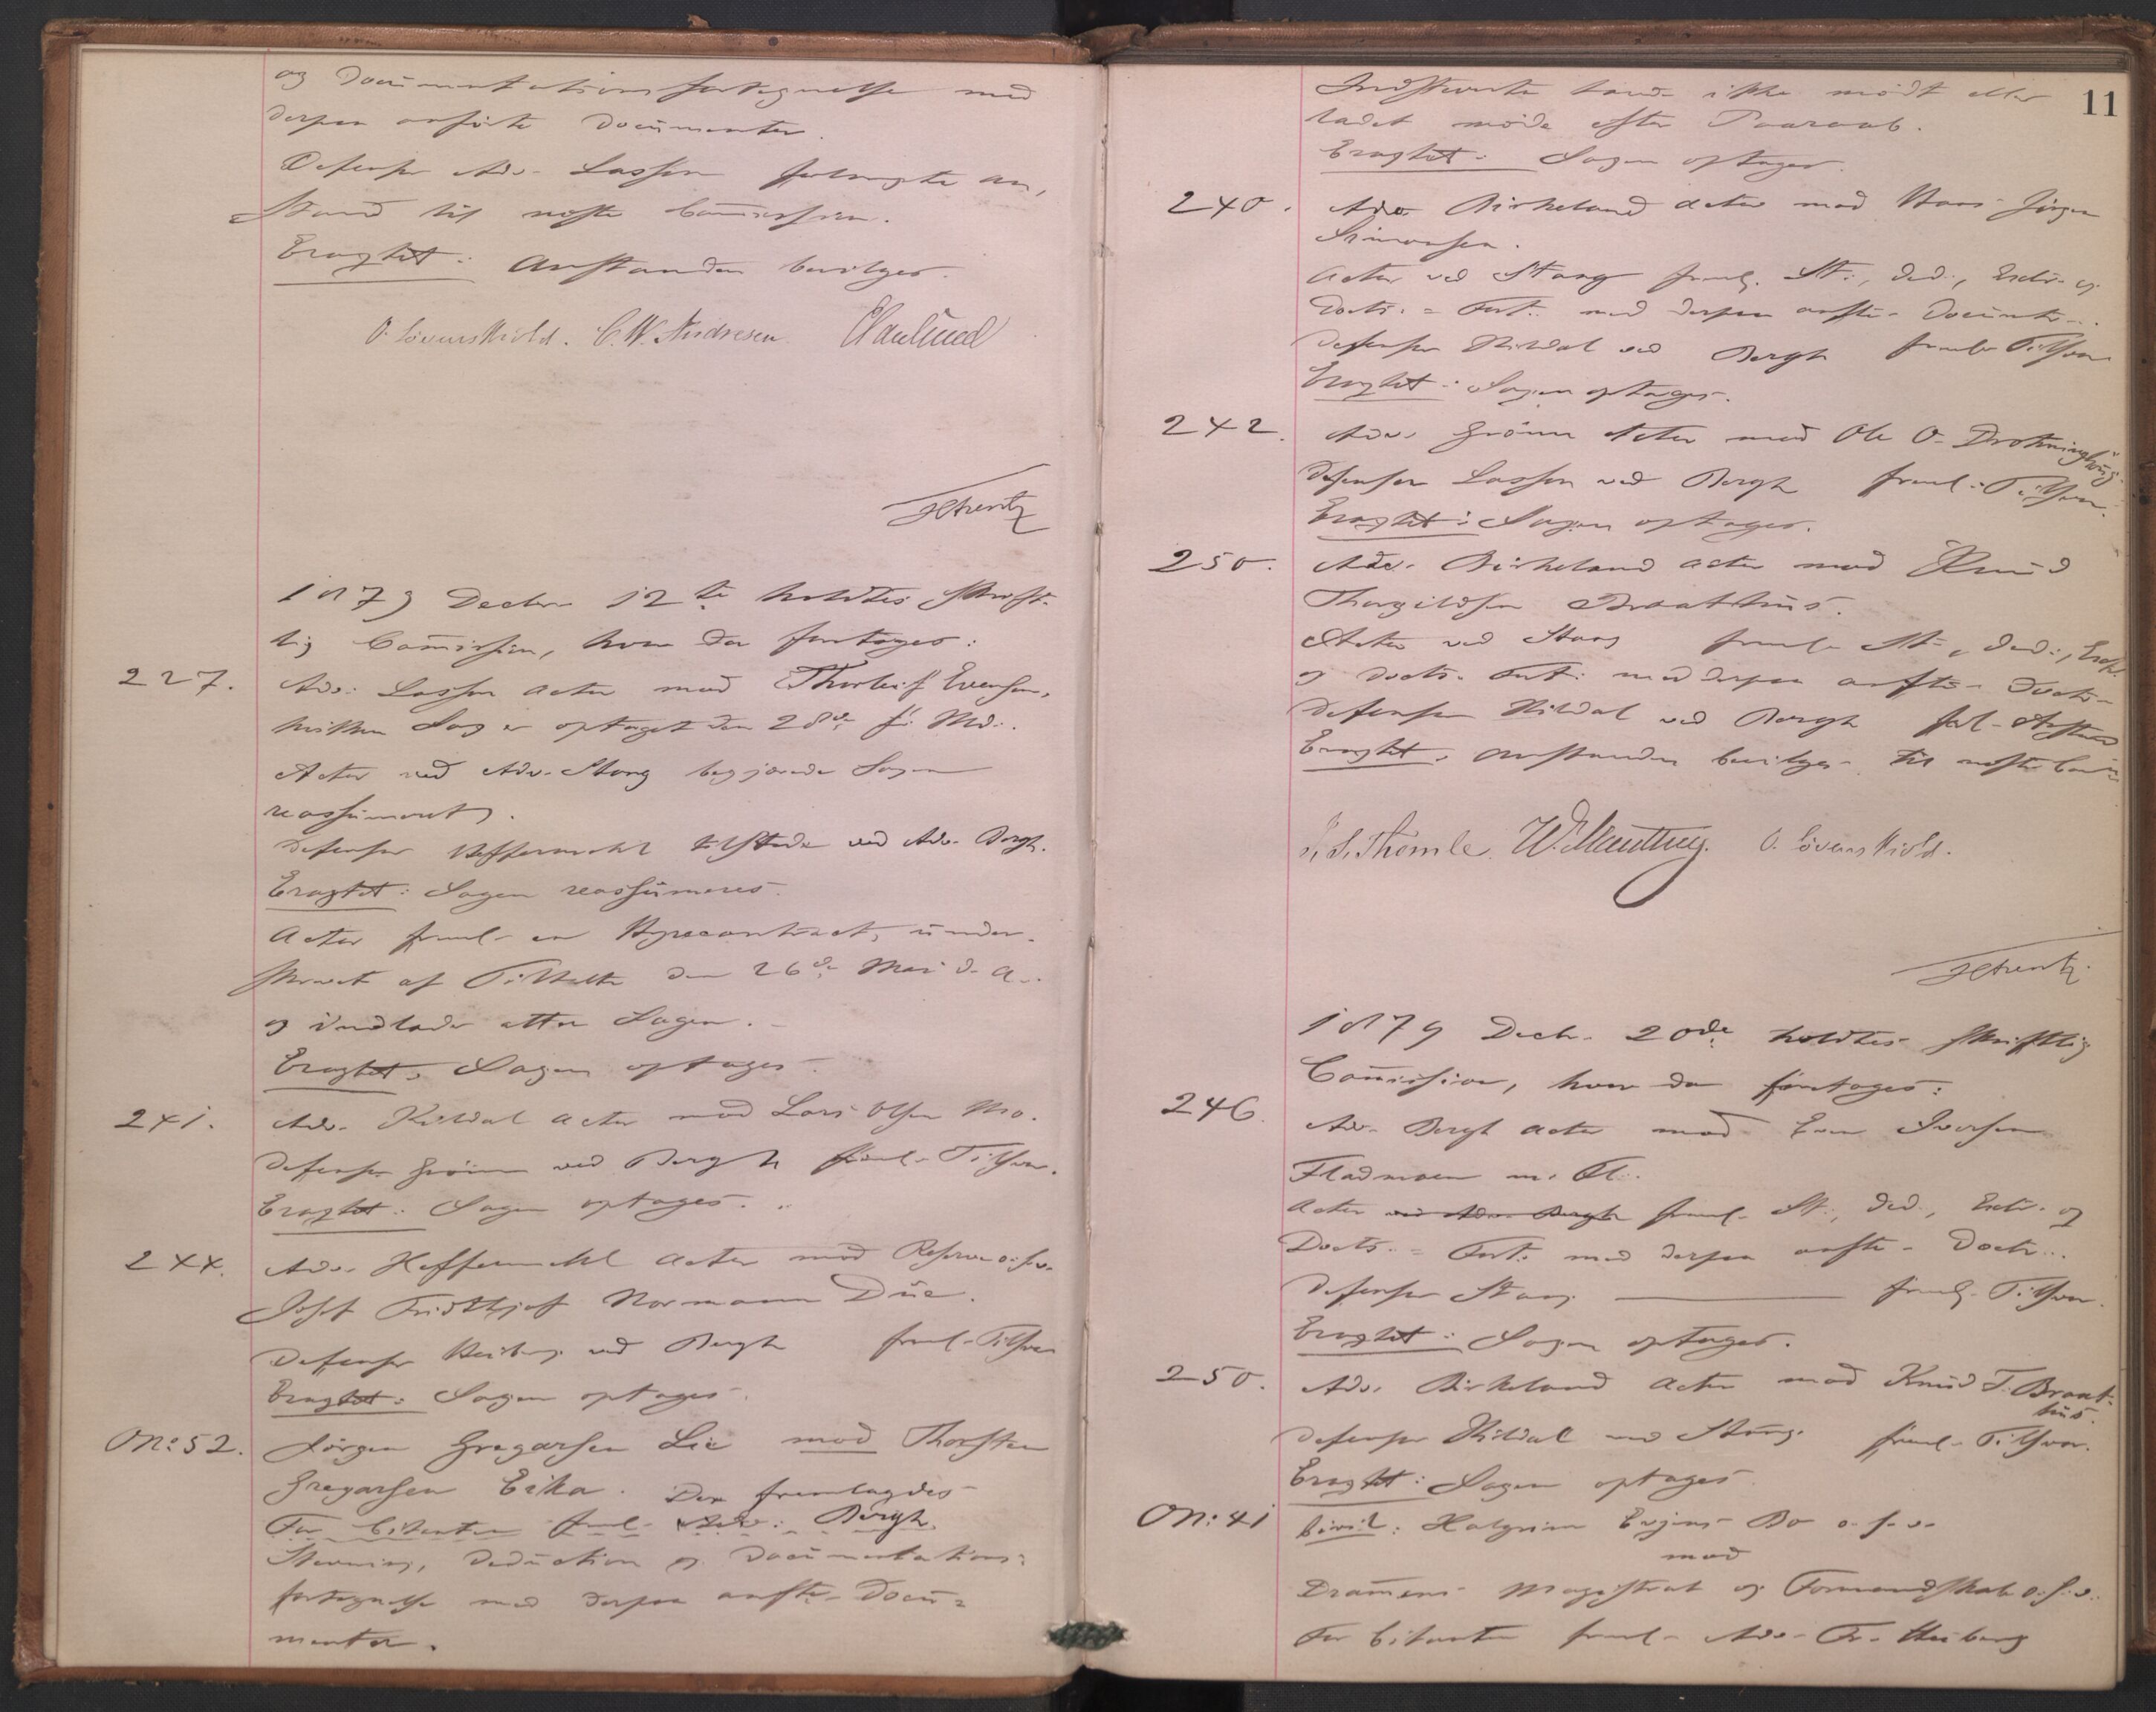 og Documentationsfortegnelse med
derpaa anførte Documenter.
Defensor Adv. Lassen forlangte An¬
stand til næste Commission.
Eragtet: Anstanden bevilges.
O. Løvenskiold. C. W. Andresen.
1879 Decbr 12te holdtes skrift¬
lig Commission, hvor da foretoges:
227. Adv. Lassen Actor mod Thorleif Evensen,
hvilken Sag er optaget den 28de f. Md.
Actor ved Adv. Stang begjærede Sagen
reassumeret.
Defensor Heffermehl tilstede ved Adv. Bergh.
Eragtet: Sagen reassumeres.
Actor freml. en Hyrecontract, under¬
skrevet af Tiltalte den 26de Mai d. A.
og indlader atter Sagen.
Eragtet: Sagen optages.
241. Adv. Kildal Actor mod Lars Olsen Mo.
Defensor Grönn ved Bergh freml. Tilsvar.
Eragtet: Sagen optages.
244. Adv. Heffermehl Actor mod Reserve o. s. v.
Josef Fridthjof Normann Due.
Defensor Heiberg ved Bergh freml. Tilsvar
Eragtet: Sagen optages.
ON: 52. Jörgen Gregarsen Lie mod Thorsten
Gregarsen Eika. Der fremlagdes
For Citanten freml. Adv. Bergh.
Stevning, Deduction og Documentations¬
fortegnelse med derpaa anfte Docu¬
menter.
11
Indstevnte havde ikke mödt eller
ladet möde efter Paaraab.
Eragtet: Sagen optages.
240. Adv. Birkeland Actor mod Hans Jörgen
Simonsen.
Actor ved Stang freml. St., Ded., Extr. og
Docts. = Fort. med derpaa anfte Documtr.
Defensor Kildal ved Bergh freml. Tilsvar
Eragtet: Sagen optages.
242. Adv. Grönn Actor mod Ole O. Drotninghaug
Defensor Lassen ved Bergh freml. Tilsvar.
Eragtet: Sagen optages.
250. Adv. Birkeland Actor mod Knud
Thorgildsen Braathus.
Actor ved Stang freml. St., Ded., Extr.
og Docts. Fort. med derpaa anfte Doctr.
Defensor Kildal ved Bergh forl. Anstand
Eragtet: Anstanden bevilges til næste Comm.
O. Løvenskiold.
1879 Decbr. 20de holdtes skriftlig
Commission, hvor da foretoges:
246. Adv. Bergh Actor mod Even Iversen
Fladmoen m. Fl.
Actor ved Adv. Bergh freml. St., Ded., Extr. og
Docts. = Fort. med derpaa anfte Doctr.
Defensor Stang freml. Tilsvar.
Eragtet: Sagen optages.
250. Adv. Birkeland Actor mod Knud T. Braat¬
hus.
Defensor Kildal ved Stang freml. Tilsvar.
Eragtet: Sagen optages.
ON: 41 Civil: Halgrim Evjens Bo o. s. v.
mod
Dramens Magistrat og Formandskab o. s. v.
For Citanten freml. Adv. Fr. Heiberg